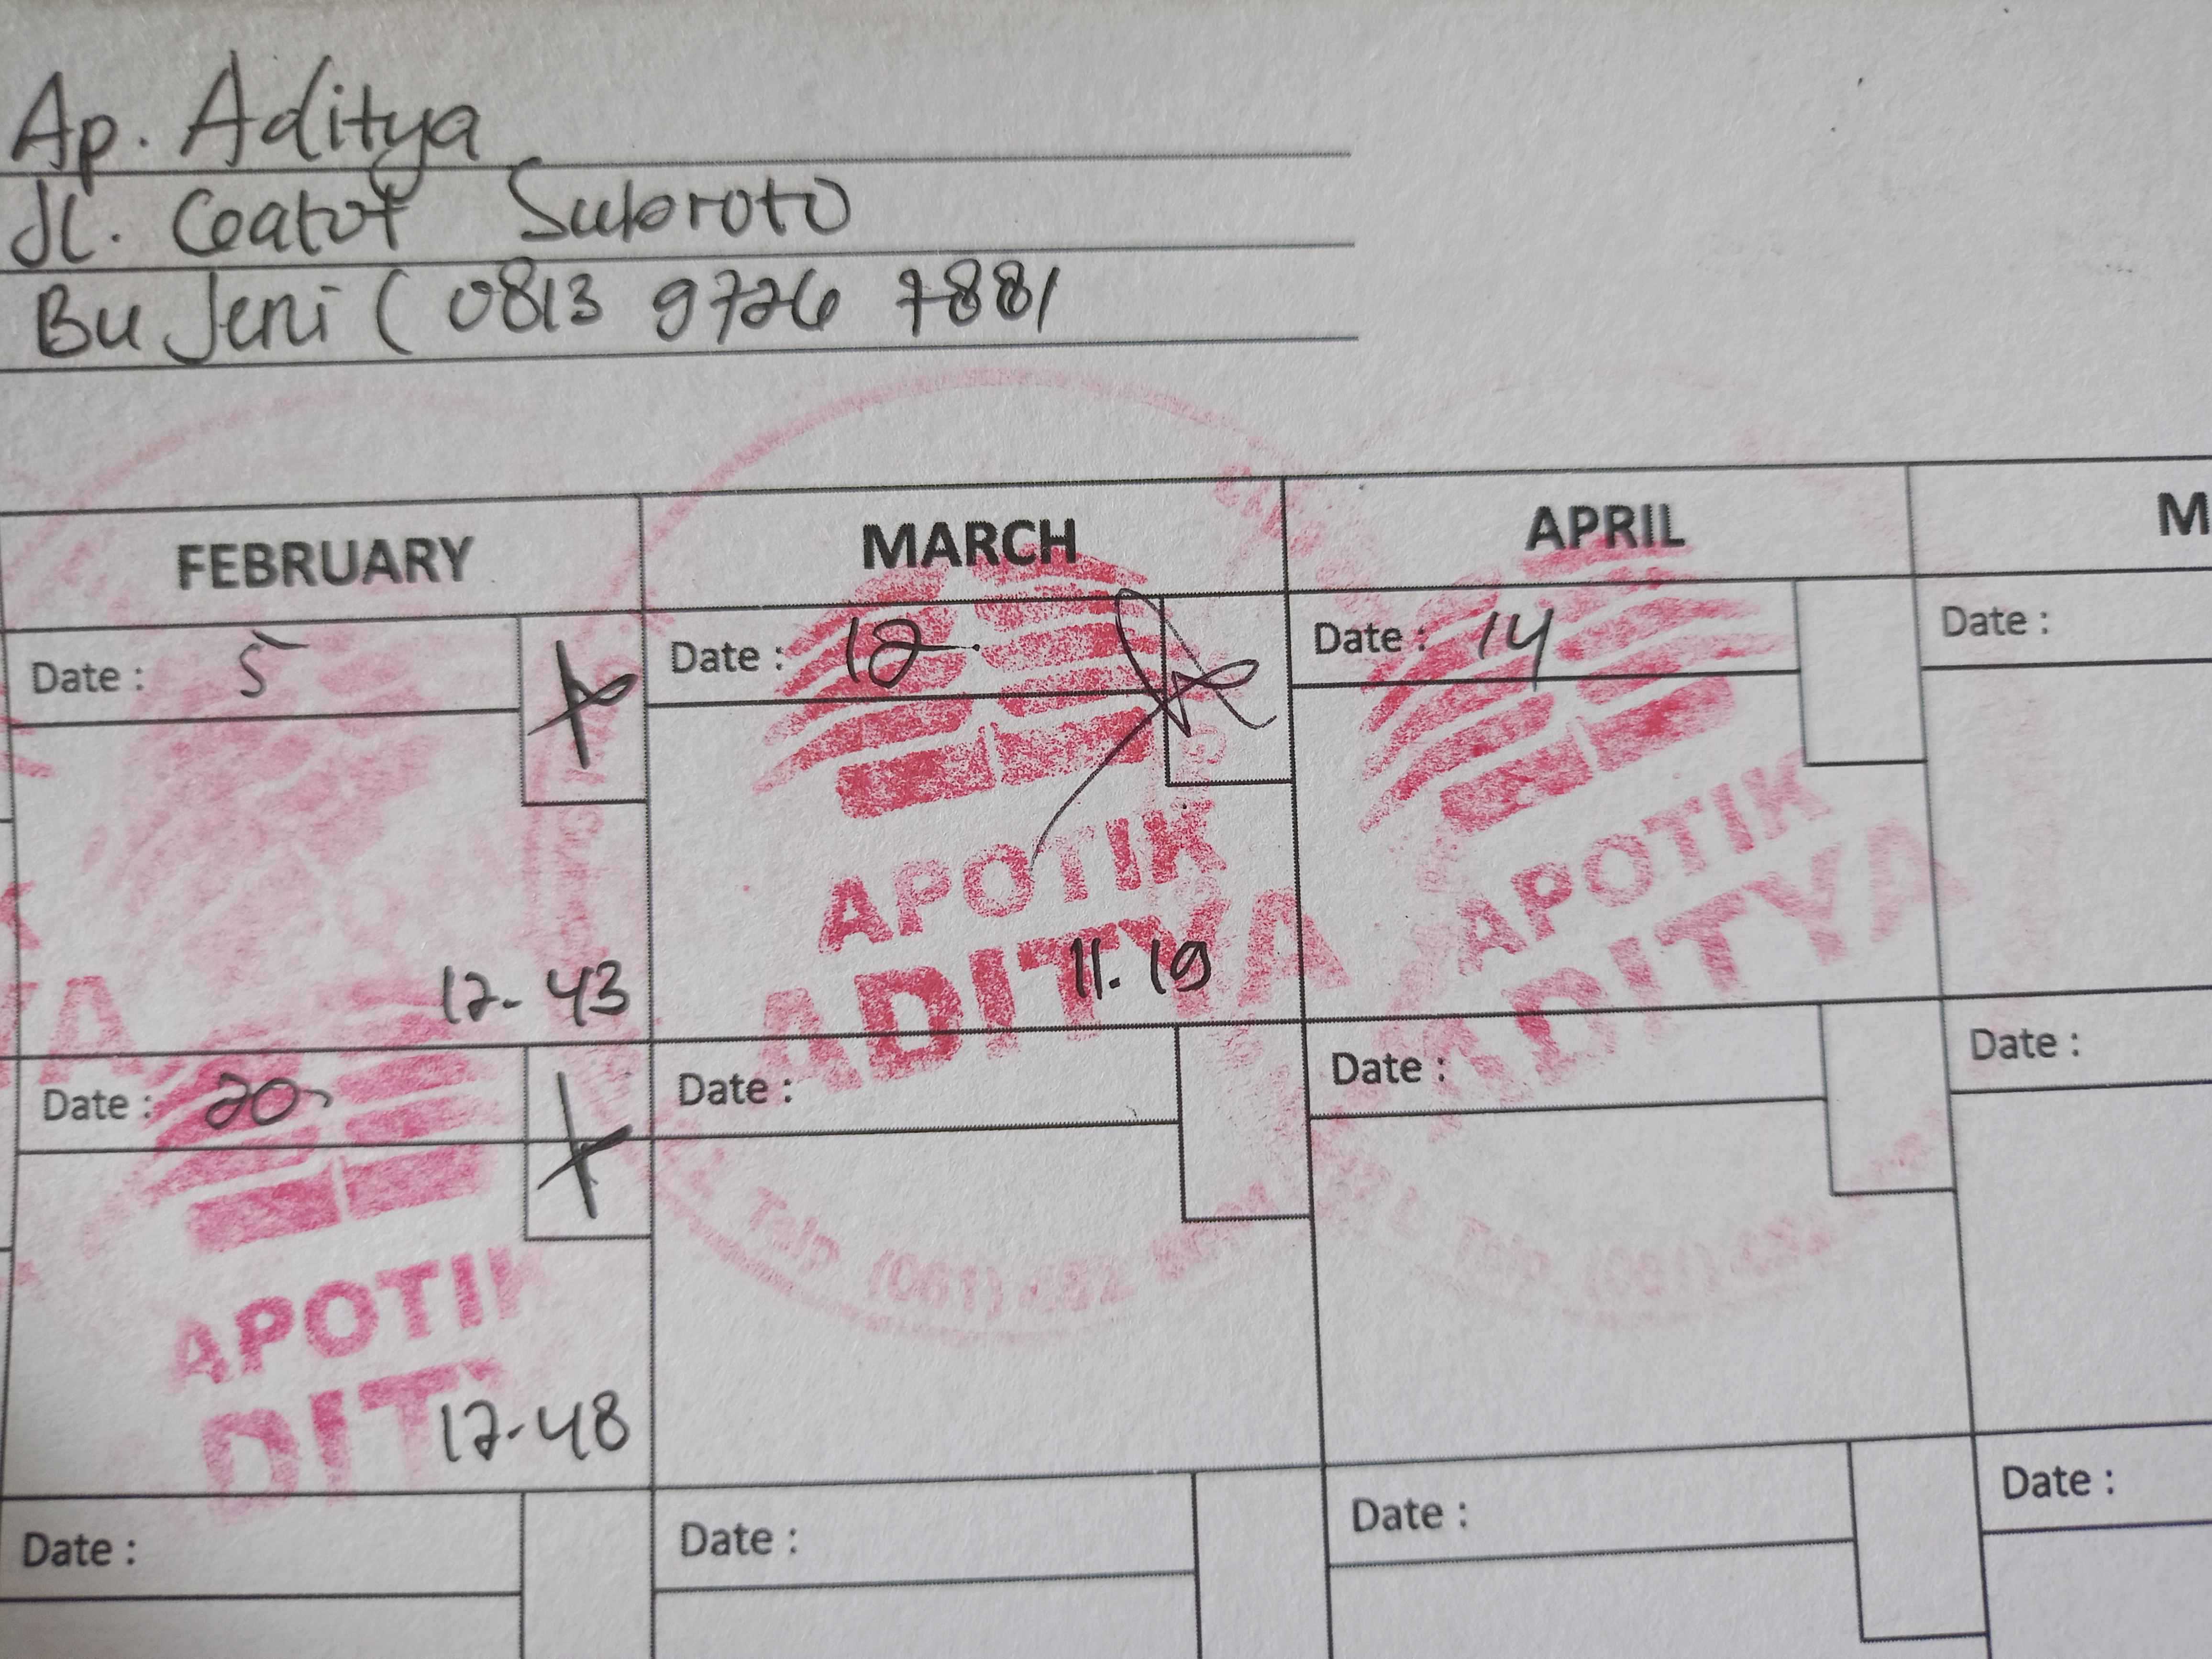 Ap. Aditya
Jl. Gatot Subroto
Bu Jeni ( 0813 9726 7881
FEBRUARY
MARCH
APRIL
M
Date : 5
Date : 12
Date : 14
Date :
APOTIK
ADITYA
APOTIK
ADITYA
YA
12-43
11.19
Date : 20
Date :
Date :
Date :
Telp. (061) 452
Telp. (061) 452
APOTIK
DITY
12-48
Date :
Date :
Date :
Date :